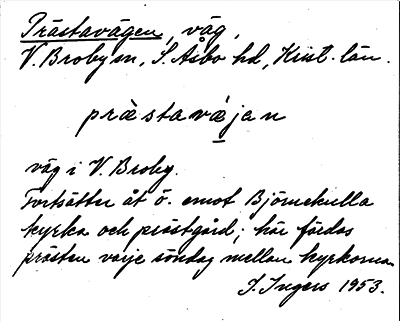 Prästavägen, väg,
V. Broby sn, S. Åsbo hd, Krist. län.
præ̀stavǽ̣jan
väg i V. Broby.
Fortsätter åt ö. emot Björnekulla
kyrka och prästgård; här färdas
prästen varje söndag mellan kyrkorna
I. Ingers 1953.